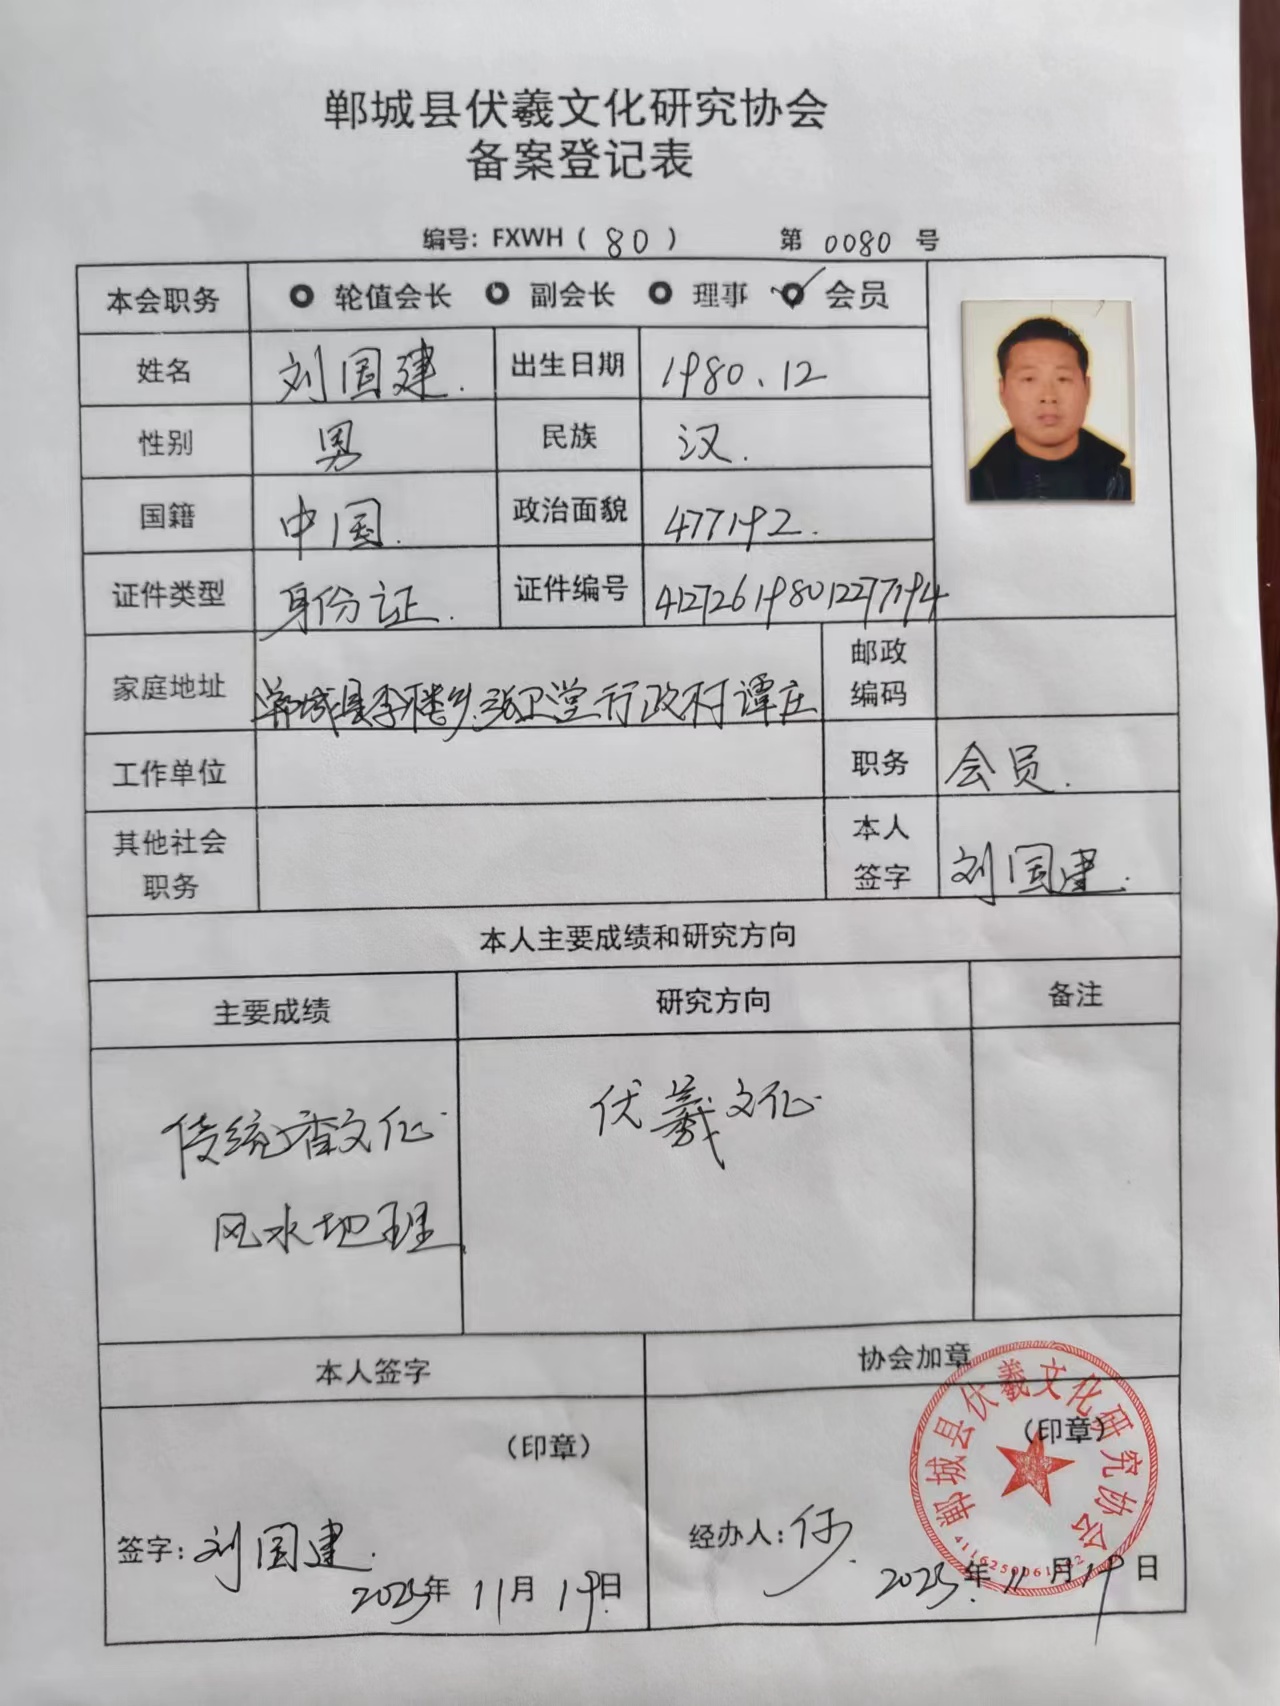 郸城县伏羲文化研究协会
备案登记表
编号: FXWH ( 80 ) 第 0080 号
本会职务 轮值会长 副会长 理事 会员
姓名 刘国建. 出生日期 1980.12
性别 男 民族 汉.
国籍 中国. 政治面貌 477192.
证件类型 身份证. 证件编号 412726198012277194
家庭地址 郸城县李楼乡张卫堂行政村谭庄 邮政编码
工作单位 职务 会员.
其他社会职务 本人签字 刘国建.
本人主要成绩和研究方向
主要成绩 研究方向 备注
传统香文化 伏羲文化
风水地理
本人签字 协会加章
(印章) (印章)
签字: 刘国建. 经办人:
2025年 11月 19日. 2025年 11月 19日
郸城县伏羲文化研究协会